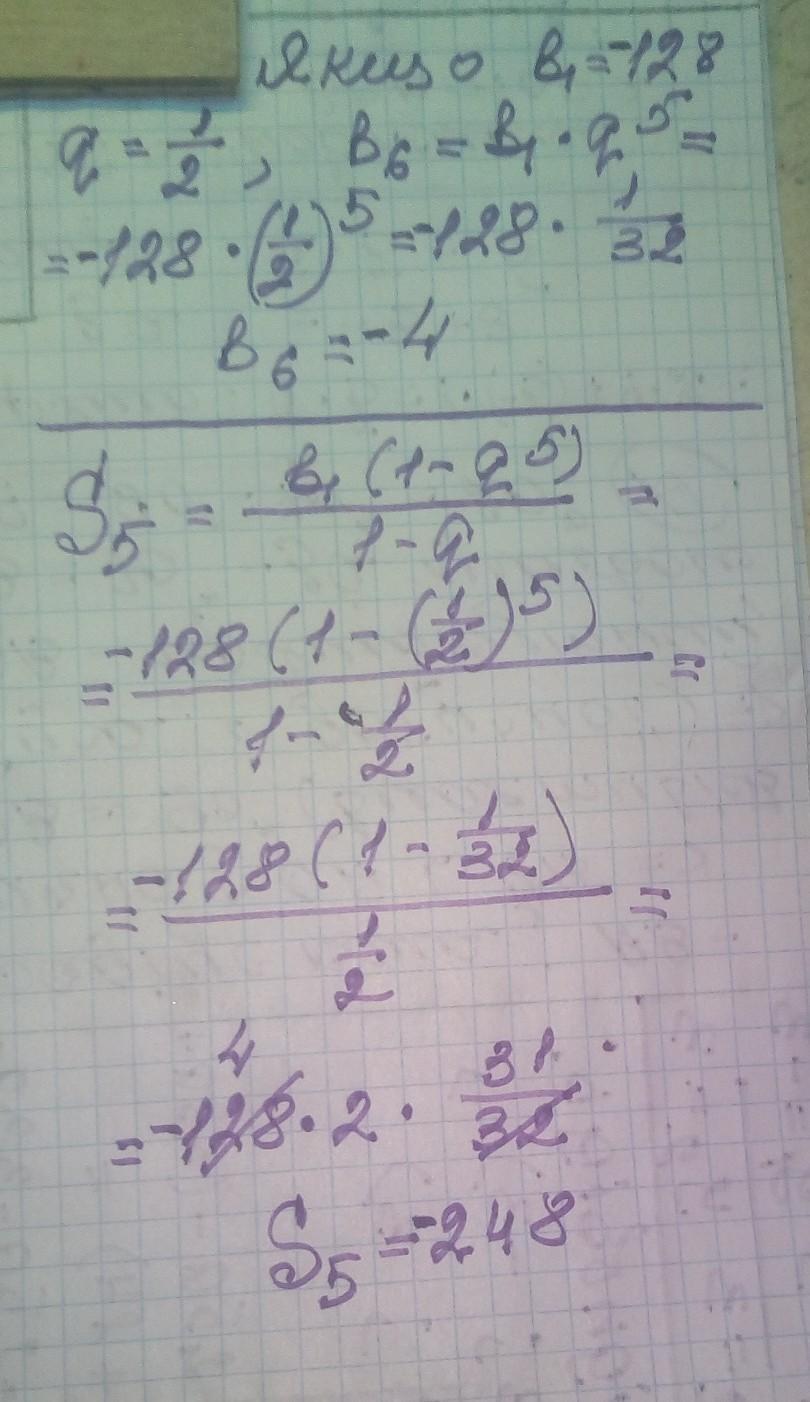 Якщо b₁ = -128
q = 1/2, b₆ = b₁ · q⁵ =
= -128 · (1/2)⁵ = -128 · 1/32
b₆ = -4
S₅ = b₁ (1 - q⁵) / 1 - q =
= -128 (1 - (1/2)⁵) / 1 - 1/2 =
= -128 (1 - 1/32) / 1/2 =
4
= -128 · 2 · 31/32
S₅ = -248